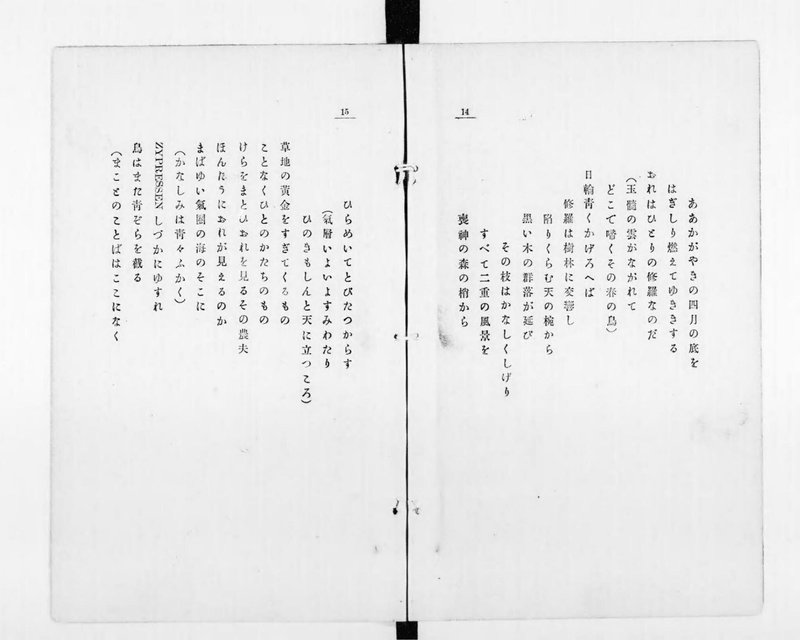 14
ああかがやきの四月の底を
はぎしり燃えてゆききする
おれはひとりの修羅なのだ
(玉髄の雲がながれて
どこで啼くその春の鳥)
日輪青くかげろへば
修羅は樹林に交響し
陥りくらむ天の椀から
黒い木の群落が延び
その枝はかなしくしげり
すべて二重の風景を
喪神の森の梢から
15
ひらめいてとびたつからす
(氣層いよいよすみわたり
ひのきもしんと天に立つころ)
草地の黄金をすぎてくるもの
ことなくひとのかたちのもの
けらをまとひおれを見るその農夫
ほんたうにおれが見えるのか
まばゆい氣圏の海のそこに
(かなしみは青々ふかく)
ZYPRESSEN しづかにゆすれ
鳥はまた青ぞらを截る
(まことのことばはここになく